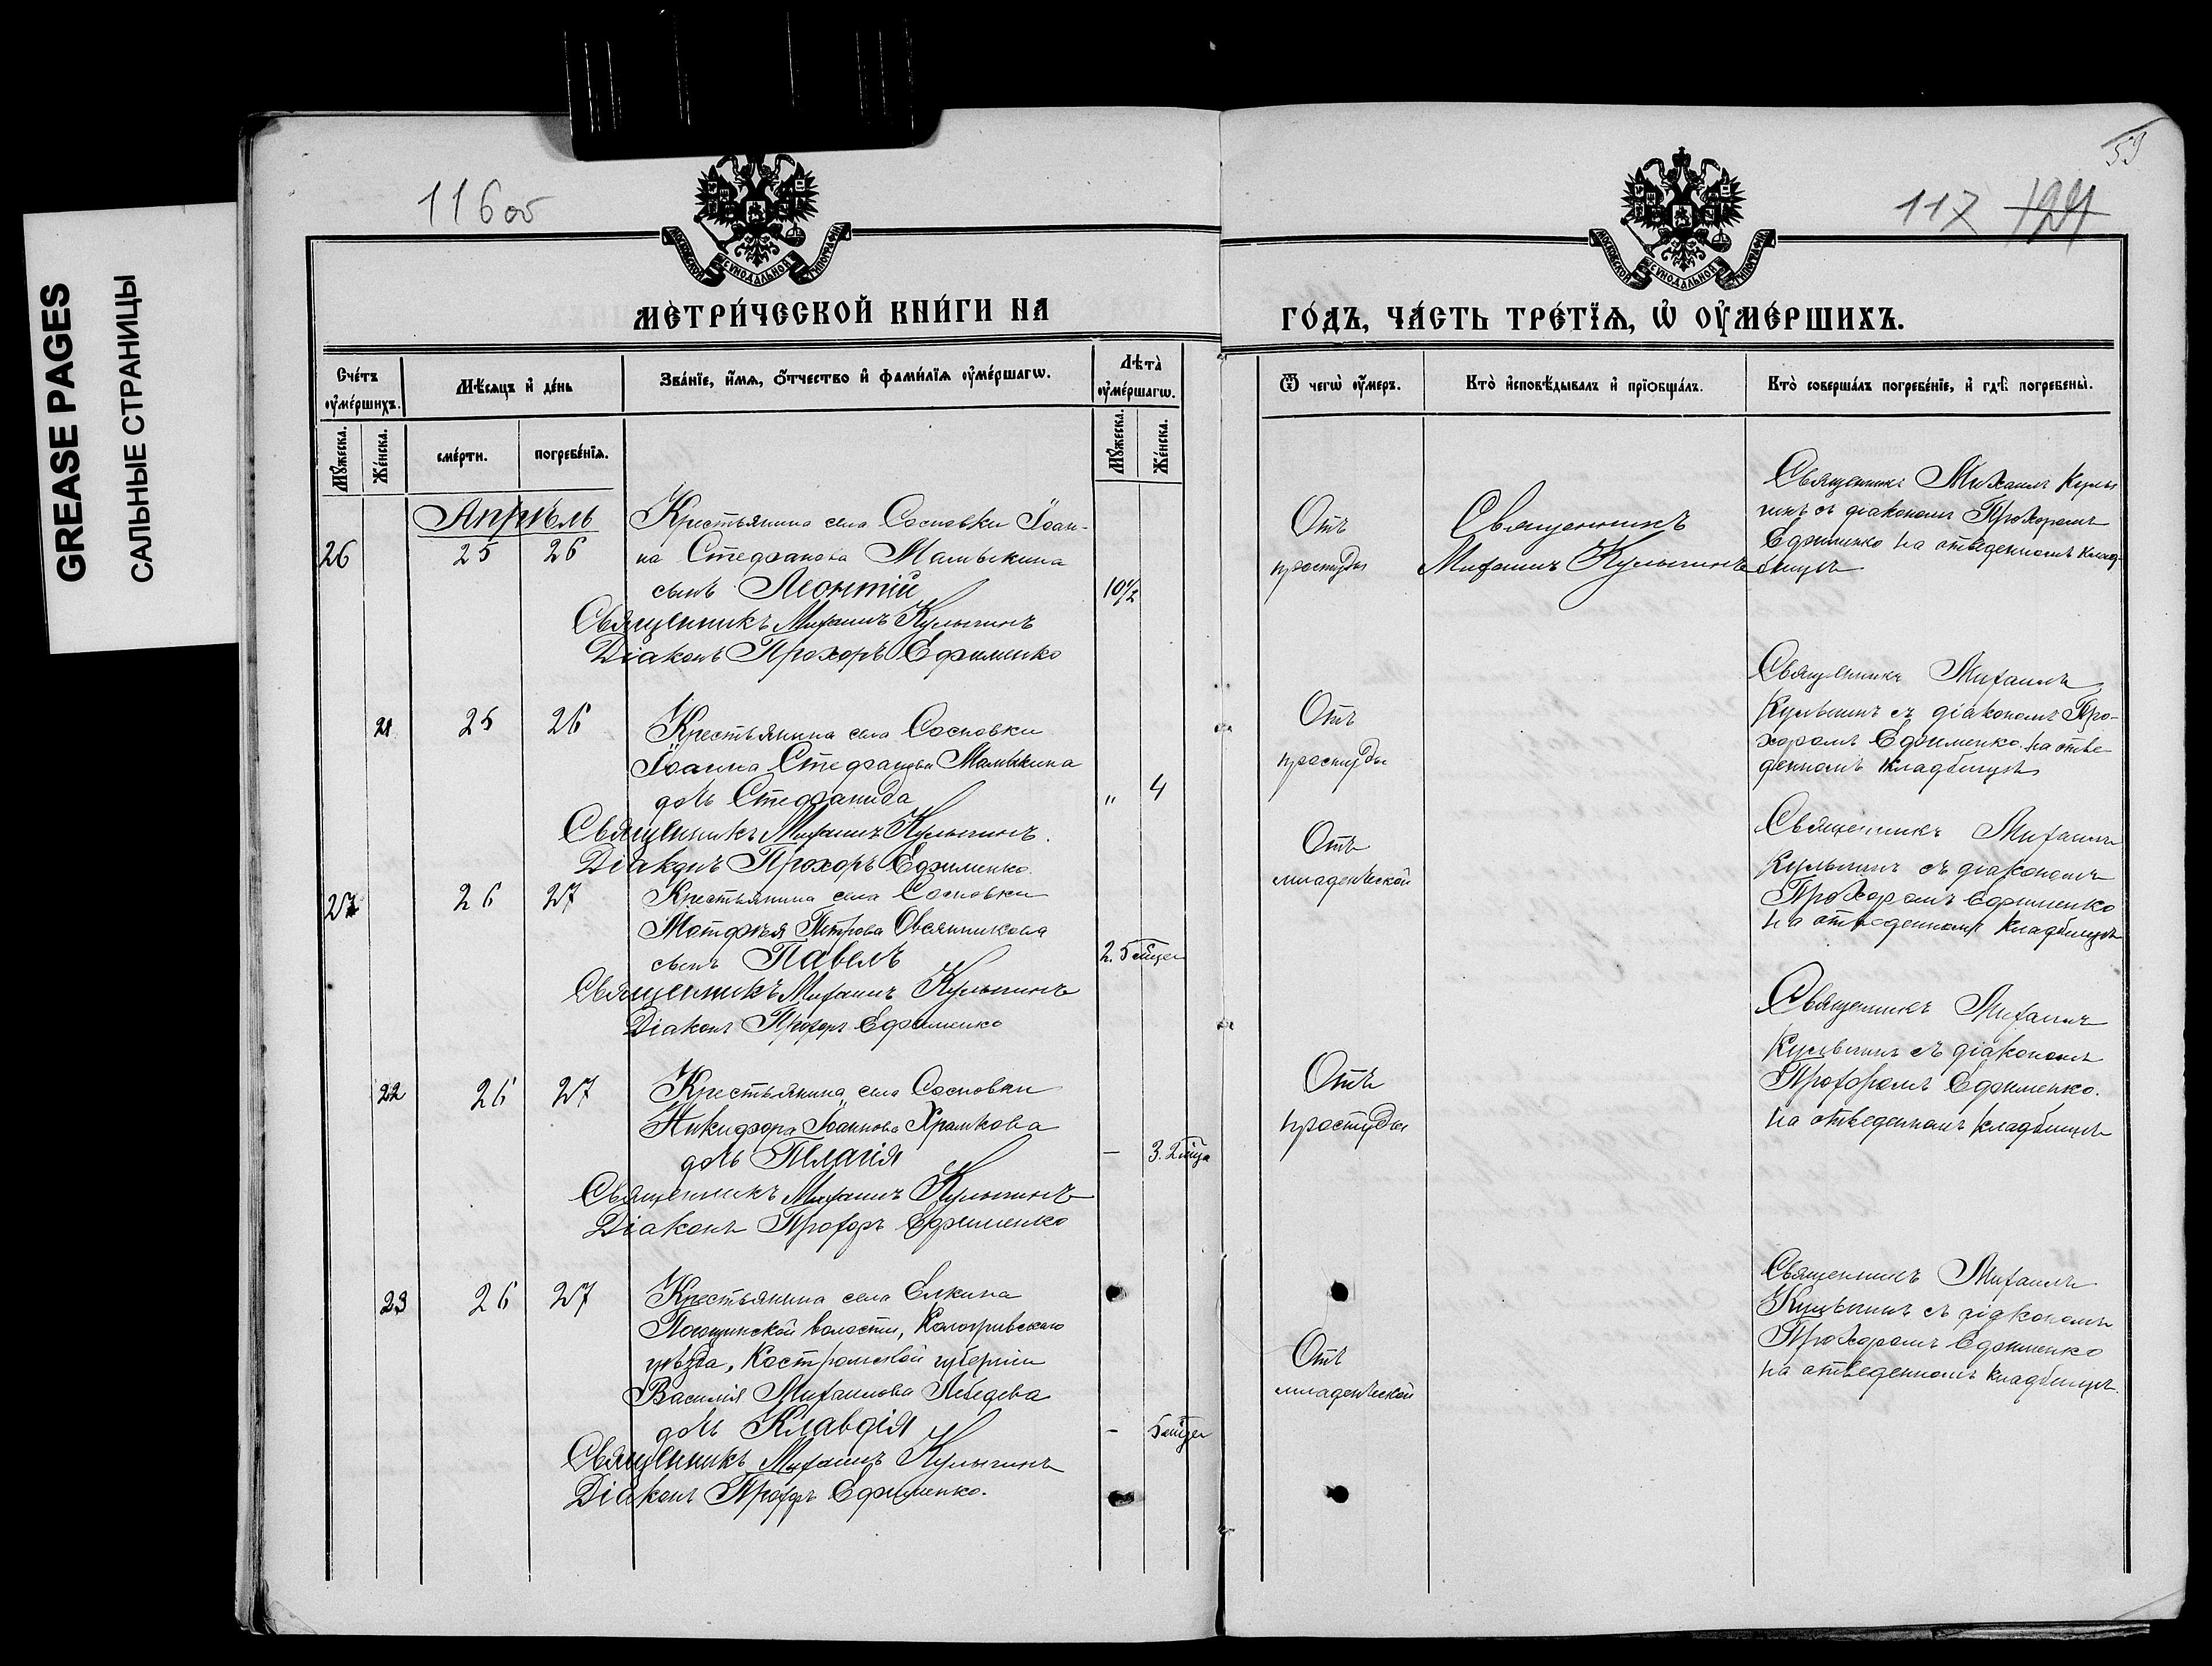 GREASE PAGES
САЛЬНЫЕ СТРАНИЦЫ
116 об
МЕТРИЧЕСКОЙ КНИГИ НА
Счетъ оумершихъ.
Мѣсяцъ и день
Званїе, имя, отчество и фамилїя оумершагѡ.
Лѣта оумершагѡ.
Мꙋжеска.
Женска.
смерти.
погребенїя.
Мꙋжеска.
Женска.
Апрѣль
26
25 26
Крестьянина села Сосновки Іоан-
на Стефанова Малыкина
сынъ Леонтій
10½
Священникъ Михаилъ Кулыгинъ
Діаконъ Прохоръ Ефименко
21 25 26
Крестьянина села Сосновки
Іоанна Стефанова Малыкина
дочь Стефанида
" 4
Священникъ Михаилъ Кулыгинъ.
Діаконъ Прохоръ Ефименко.
27 26 27
Крестьянина села Сосновки
Матфея Петрова Овсянникова
сынъ Павелъ
2. 5 мѣсцев
Священникъ Михаилъ Кулыгинъ
Діаконъ Прохоръ Ефименко
22 26 27
Крестьянина села Сосновки
Никифора Іоаннова Храмкова
дочь Пелагія
– 3. 2 мѣсца
Священникъ Михаилъ Кулыгинъ
Діаконъ Прохоръ Ефименко
23 26 27
Крестьянина села Елкина
волости, Кологривскаго
уѣзда, Костромской губерніи
Василія Михаилова Лебедева
дочь Клавдія
– 5 мѣсцев
Священникъ Михаилъ Кулыгинъ
Діаконъ Прохоръ Ефименко.
59
117 121
МОСКОВСКОЙ СѴНОДАЛЬНОЙ ТИПОГРАФIИ
ГОДЪ, ЧАСТЬ ТРЕТЇЯ, Ѡ ОУМЕРШИХЪ.
Ѿ чегѡ оумеръ.
Кто исповѣдывалъ и прїобщалъ.
Кто совершалъ погребенїе, и гдѣ погребены.
Отъ
простуды
Священникъ
Михаилъ Кулыгинъ
Священникъ Михаилъ Кулы
гинъ съ діакономъ Прохоромъ
Ефименко на отведенномъ клад-
бищѣ
Отъ
простуды
Священникъ Михаилъ
Кулыгинъ съ діакономъ Про-
хоромъ Ефименко на отве
денномъ кладбищѣ
Отъ
младенческой
Священникъ Михаилъ
Кулыгинъ съ діакономъ
Прохоромъ Ефименко
на отведенномъ кладбищѣ
Отъ
простуды
Священникъ Михаилъ
Кулыгинъ съ діакономъ
Прохоромъ Ефименко.
на отведенномъ кладбищѣ
Отъ
младенческой
Священникъ Михаилъ
Кулыгинъ съ діакономъ
Прохоромъ Ефименко
на отведенномъ кладбищѣ.